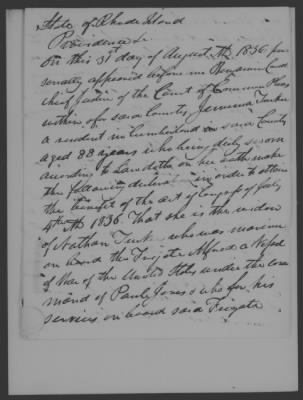 State of Rhode Island
Providence Sc
On this 31st day of August AD. 1836 per
sonally appeared before me Benjamin
chief Justice of the Court of Common Pleas
within & for said County, Jemima
a resident in Cumberland in said County
aged 88 years who being duly sworn
according to law doth on her oath make
the following declaration in order to obtain
the benefit of the act of Congress of July
4th AD 1836. That she is the widow
of Nathan who was marine
on board the Frigate Alfred a Vessel
of War of the United States under the com
mand of Paul Jones & who for his
services on board said Frigate